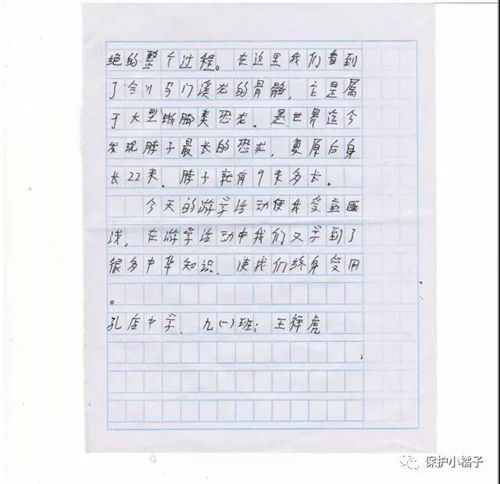 绝的整个过程。在这里我们看到
了合川马门溪龙的骨骼，它是属
于大型蜥脚类恐龙，是世界迄今
发现脖子最长的恐龙，复原后身
长22米，脖子就有9米多长。
今天的游学活动使我受益匪
浅，在游学活动中我们又学到了
很多中华知识，使我们终身受用
。
孔店中学 九（一）班：王祥虎
保护小橘子